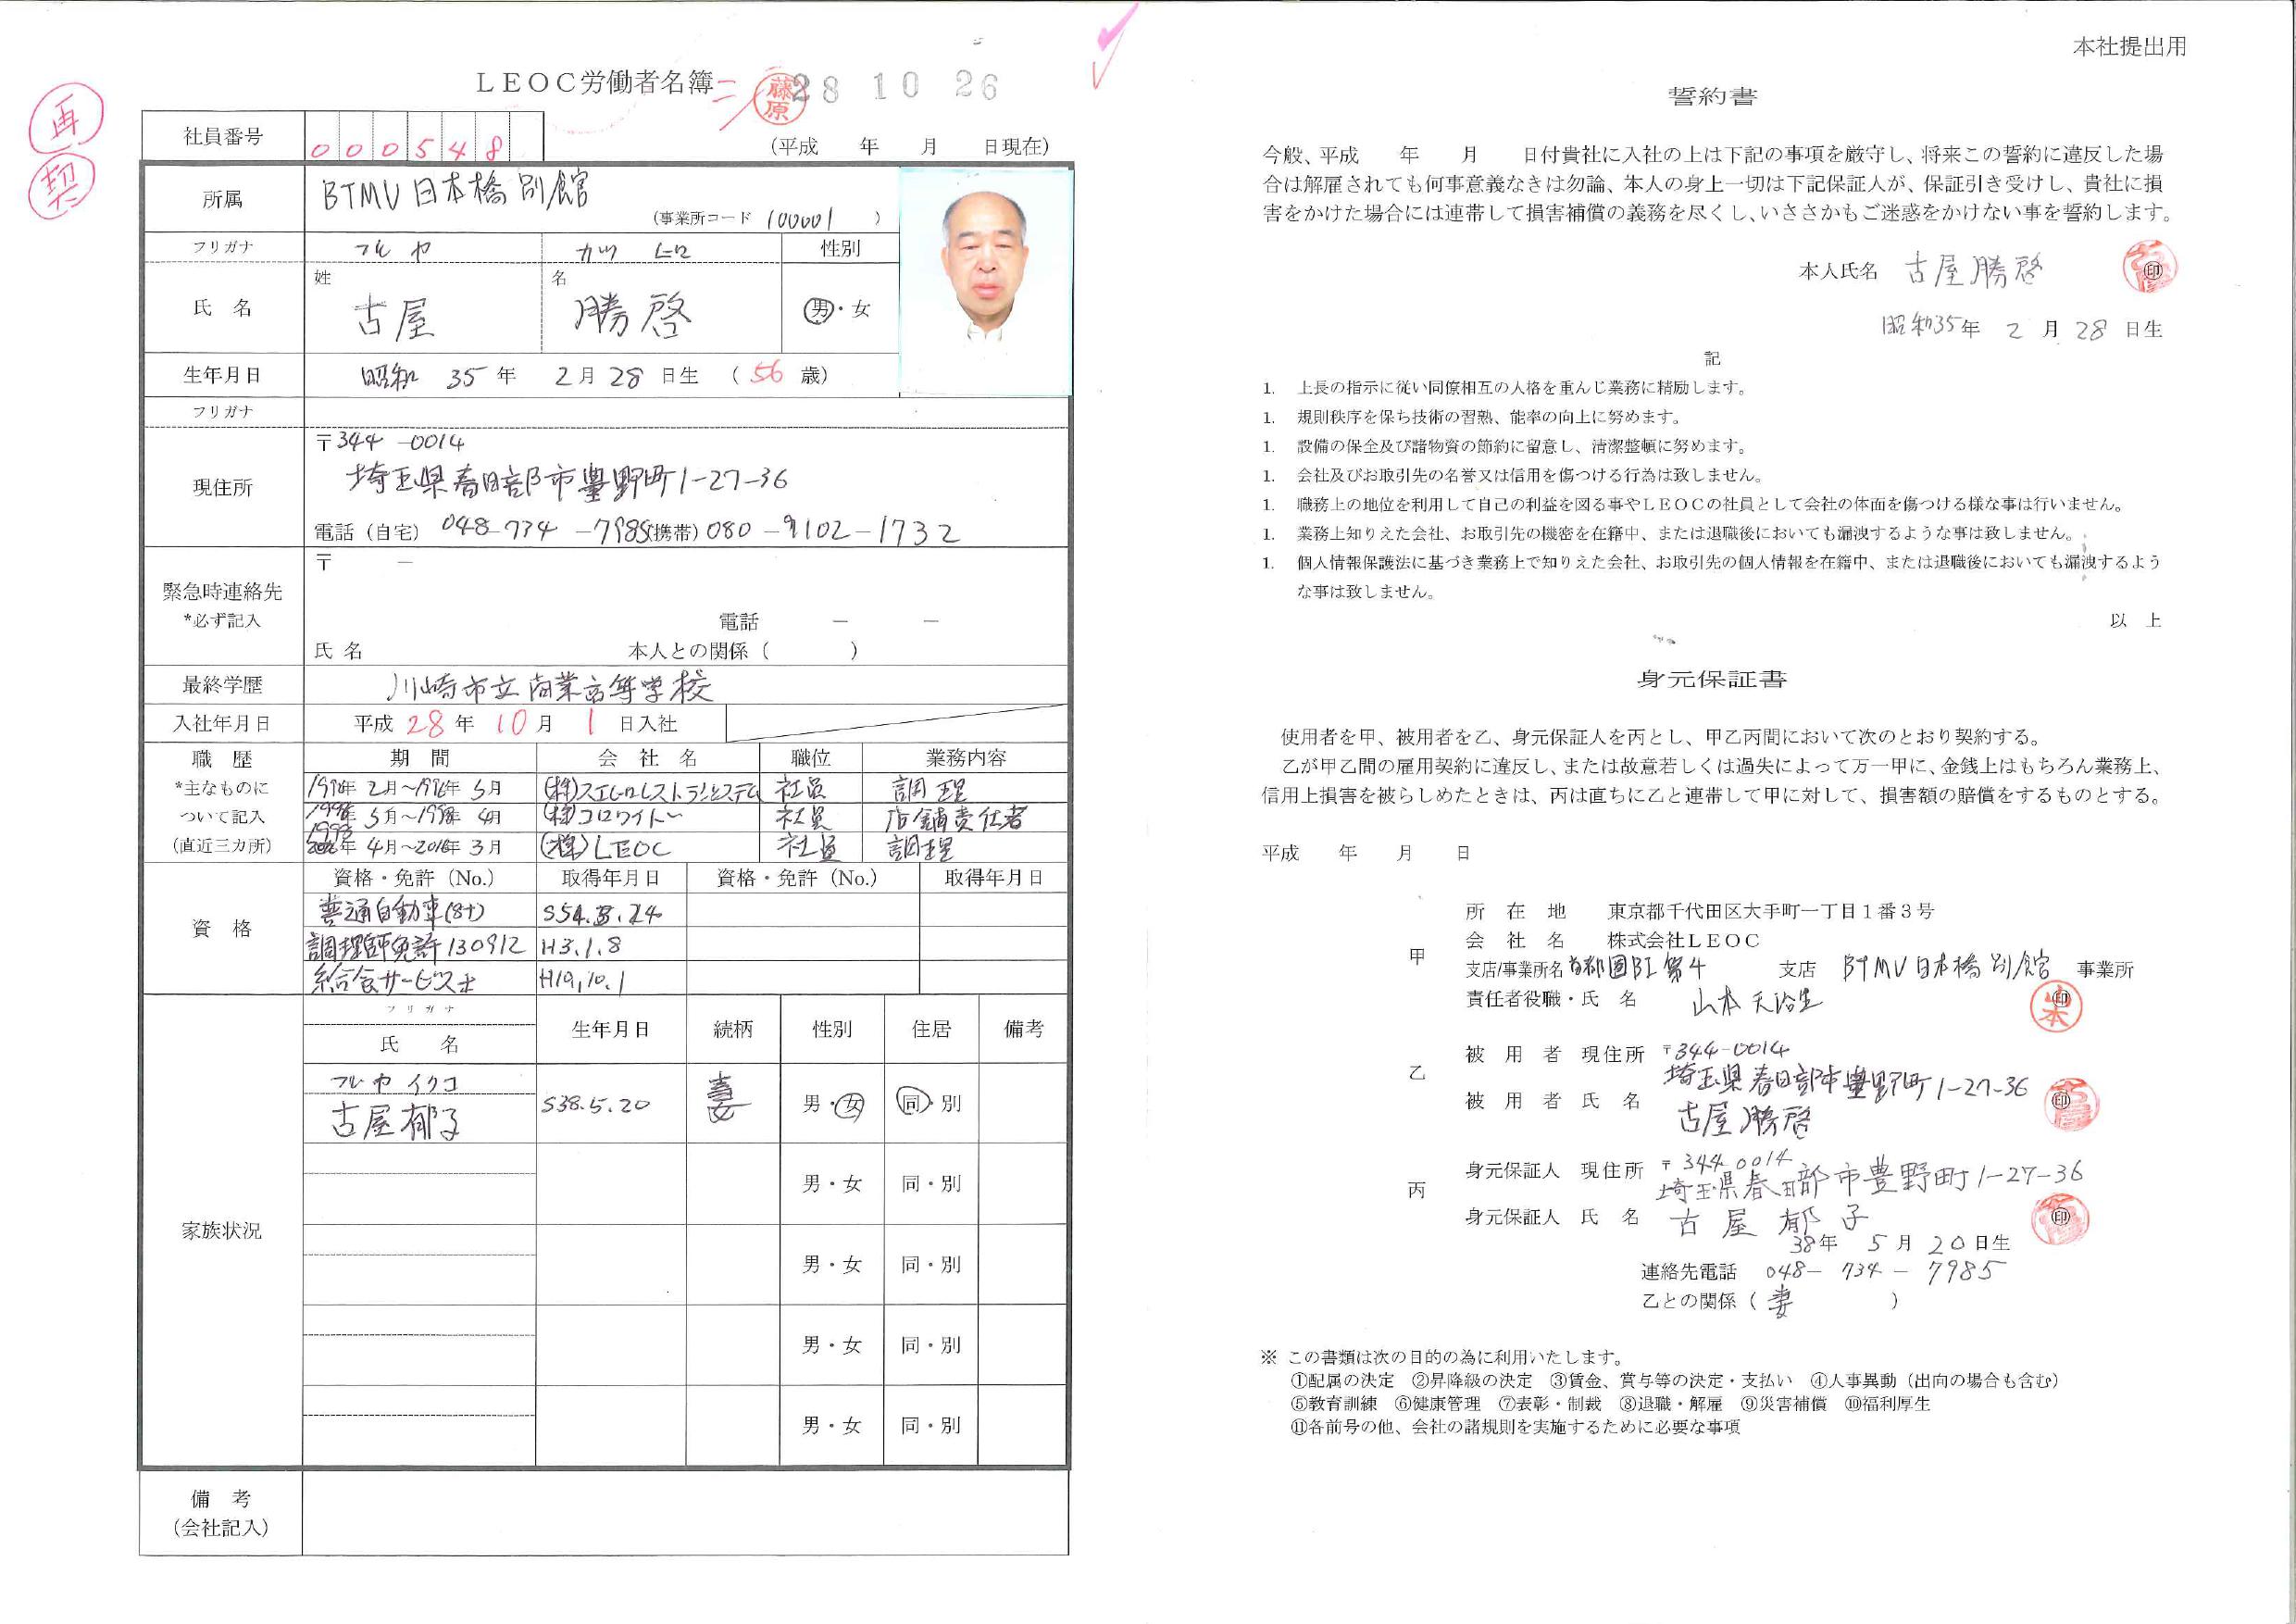 本社提出用
再
契
LEOC労働者名簿
藤原
28 10 26
社員番号 000548
(平成 年 月 日現在)
所属 BTMU日本橋別館
(事業所コード 100001 )
フリガナ フルヤ カツヒロ 性別
氏 名 姓 古屋 名 勝啓 男・女
生年月日 昭和 35 年 2 月 28 日生 ( 56 歳)
フリガナ
現住所 〒344-0014
埼玉県春日部市豊野町1-27-36
電話(自宅) 048-734-7985 (携帯) 080-9102-1732
緊急時連絡先 〒 −
*必ず記入 電話 − −
氏 名 本人との関係( )
最終学歴 川崎市立商業高等学校
入社年月日 平成 28 年 10 月 1 日入社
職 歴 期 間 会 社 名 職位 業務内容
*主なものに 2月~ 5月 (株) 社員 調理
ついて記入 5月~1998年 4月 (株)コロワイド 社員 店舗責任者
(直近三カ所) 1998年 4月~2016年 3月 (株)LEOC 社員 調理
資 格 資格・免許(No.) 取得年月日 資格・免許(No.) 取得年月日
普通自動車(8t) S54. .24
調理師免許130912 H3.1.8
給食サービス士 H19.10.1
家族状況 フリガナ
氏 名 生年月日 続柄 性別 住居 備考
フルヤ イクコ
古屋郁子 S38.5.20 妻 男・女 同・別
男・女 同・別
男・女 同・別
男・女 同・別
男・女 同・別
備 考
(会社記入)
誓約書
今般、平成 年 月 日付貴社に入社の上は下記の事項を厳守し、将来この誓約に違反した場
合は解雇されても何事意義なきは勿論、本人の身上一切は下記保証人が、保証引き受けし、貴社に損
害をかけた場合には連帯して損害補償の義務を尽くし、いささかもご迷惑をかけない事を誓約します。
本人氏名 古屋勝啓 印
昭和35年 2 月 28 日生
記
1. 上長の指示に従い同僚相互の人格を重んじ業務に精励します。
1. 規則秩序を保ち技術の習熟、能率の向上に努めます。
1. 設備の保全及び諸物資の節約に留意し、清潔整頓に努めます。
1. 会社及びお取引先の名誉又は信用を傷つける行為は致しません。
1. 職務上の地位を利用して自己の利益を図る事やLEOCの社員として会社の体面を傷つける様な事は行いません。
1. 業務上知りえた会社、お取引先の機密を在籍中、または退職後においても漏洩するような事は致しません。
1. 個人情報保護法に基づき業務上で知りえた会社、お取引先の個人情報を在籍中、または退職後においても漏洩するよう
な事は致しません。
以 上
身元保証書
使用者を甲、被用者を乙、身元保証人を丙とし、甲乙丙間において次のとおり契約する。
乙が甲乙間の雇用契約に違反し、または故意若しくは過失によって万一甲に、金銭上はもちろん業務上、
信用上損害を被らしめたときは、丙は直ちに乙と連帯して甲に対して、損害額の賠償をするものとする。
平成 年 月 日
所 在 地 東京都千代田区大手町一丁目1番3号
甲 会 社 名 株式会社LEOC
支店/事業所名 首都圏BI第4 支店 BTMU日本橋別館 事業所
責任者役職・氏 名 山本 印
乙 被 用 者 現住所 〒344-0014
埼玉県春日部市豊野町1-27-36
被 用 者 氏 名 古屋勝啓 印
丙 身元保証人 現住所 〒344-0014
埼玉県春日部市豊野町1-27-36
身元保証人 氏 名 古屋郁子 印
38年 5 月 20 日生
連絡先電話 048-734-7985
乙との関係( 妻 )
※ この書類は次の目的の為に利用いたします。
①配属の決定 ②昇降級の決定 ③賃金、賞与等の決定・支払い ④人事異動(出向の場合も含む)
⑤教育訓練 ⑥健康管理 ⑦表彰・制裁 ⑧退職・解雇 ⑨災害補償 ⑩福利厚生
⑪各前号の他、会社の諸規則を実施するために必要な事項